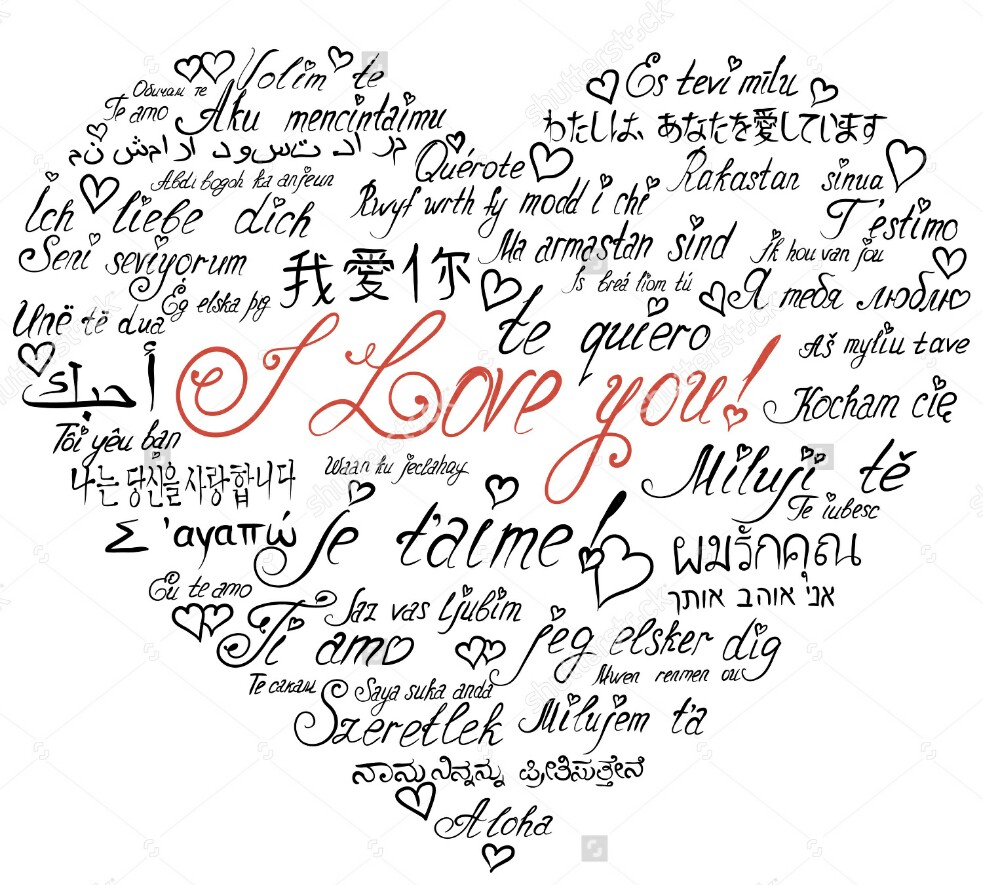 Volim te
Обичам те
Te amo
Aku mencintaimu
Es tevi mīlu
わたしは、あなたを愛しています
من شما را دوست دارم
Quérote
Abdi bogoh ka anjeun
Rakastan sinua
Ich liebe dich
Rwyf wrth fy modd i chi
T'estimo
Seni seviyorum
我愛你
Ma armastan sind
Ik hou van jou
Is breá liom tú
Ég elska þig
Я тебя люблю
Unë të dua
I Love you!
te quiero
Aš myliu tave
أحبك
Kocham cię
Tôi yêu bạn
나는 당신을 사랑합니다
Waan ku jeclahay
Miluji tě
Te iubesc
Σ 'αγαπώ
Je t'aime!
ผมรักคุณ
אני אוהב אותך
Eu te amo
Jaz vas ljubim
Ti amo
Jeg elsker dig
Mwen renmen ou
Те сакам
Saya suka anda
Szeretlek
Milujem ťa
ನಾನು ನಿನ್ನನ್ನು ಪ್ರೀತಿಸುತ್ತೇನೆ
Aloha